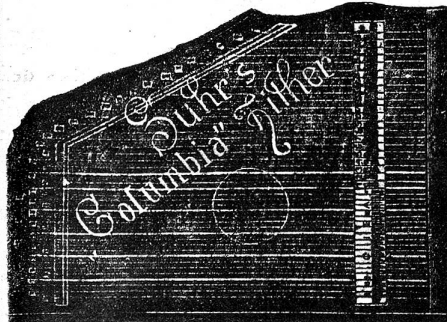 Suhr's
"Columbia" Zither